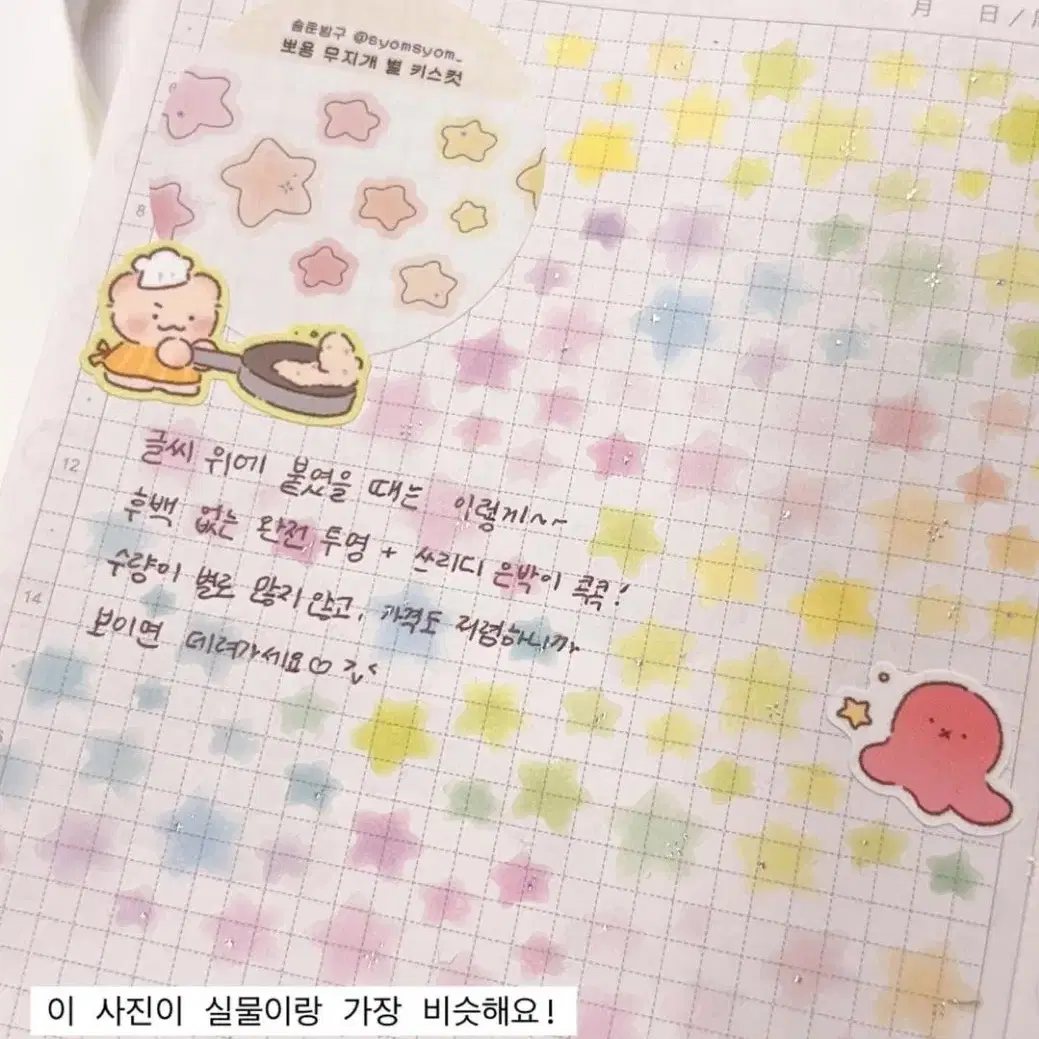 月 日/
솜뭉밤구 @syomsyom_
뽀용 무지개 별 키스컷
8
12
글씨 위에 붙였을 때는 이렇게~~
후백 없는 완전 투명 + 쓰리디 은박이 콕콕!
14
수량이 별로 많지 않고, 가격도 저렴하니까
보이면 데려가세요♡
이 사진이 실물이랑 가장 비슷해요!